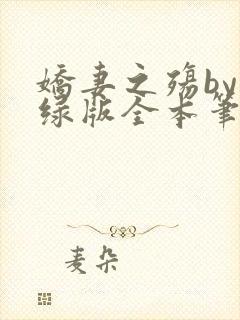 娇妻之殇by
绿版全本笔
麦朵